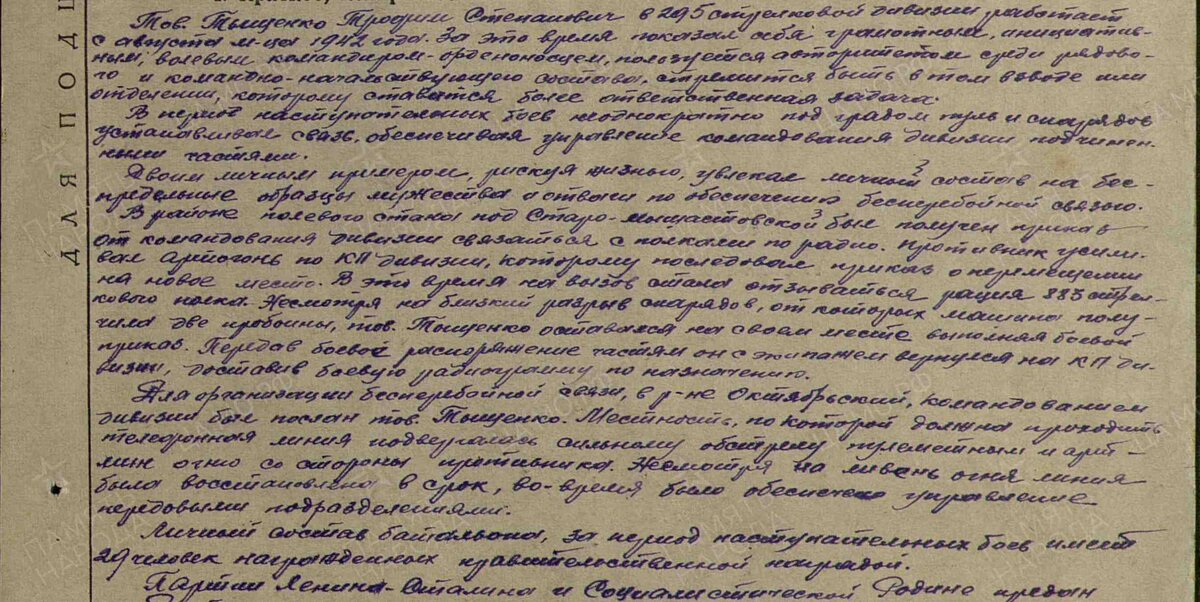 Тов. Тыщенко Трофим Степанович в 295 стрелковой дивизии работает
с августа м-ца 1942 года. За это время показал себя грамотным, инициатив-
ным, волевым командиром-орденоносцем, пользуется авторитетом среди рядово-
го и командно-начальствующего состава, стремится быть в том взводе или
отделении, которому ставится более ответственная задача.
В период наступательных боев неоднократно под градом пуль и снарядов
устанавливал связь, обеспечивая управление командования дивизии подчинен-
ными частями.
Своим личным примером, рискуя жизнью, увлекал личный состав на бес-
предельные образцы мужества и отваги по обеспечению бесперебойной связью.
В районе полевого стана под Старо-Мышастовской был получен приказ
от командования дивизии связаться с полками по радио. Противник усили-
вал артогонь по КП дивизии, которому последовал приказ о перемещении
на новое место. В это время на вызов стала отзываться рация 883 стрел-
кового полка. Несмотря на близкий разрыв снарядов, от которых машина полу-
чила две пробоины, тов. Тыщенко оставался на своем месте выполняя боевой
приказ. Передав боевое распоряжение частям он с экипажем вернулся на КП ди-
визии, доставив боевую радиограмму по назначению.
Для организации бесперебойной связи, в р-не Октябрьский, командованием
дивизии был послан тов. Тыщенко. Местность, по которой должна проходить
телефонная линия подвергалась сильному обстрелу пулеметным и арт-
мин огню со стороны противника. Несмотря на ливень огня линия
была восстановлена в срок, во-время было обеспечено управление
передовыми подразделениями.
Личный состав батальона, за период наступательных боев имеет
29 человек награжденных правительственной наградой.
Партии Ленина-Сталина и Социалистической Родине предан
ДЛЯ ПОД
ПАМЯТЬ НАРОДА